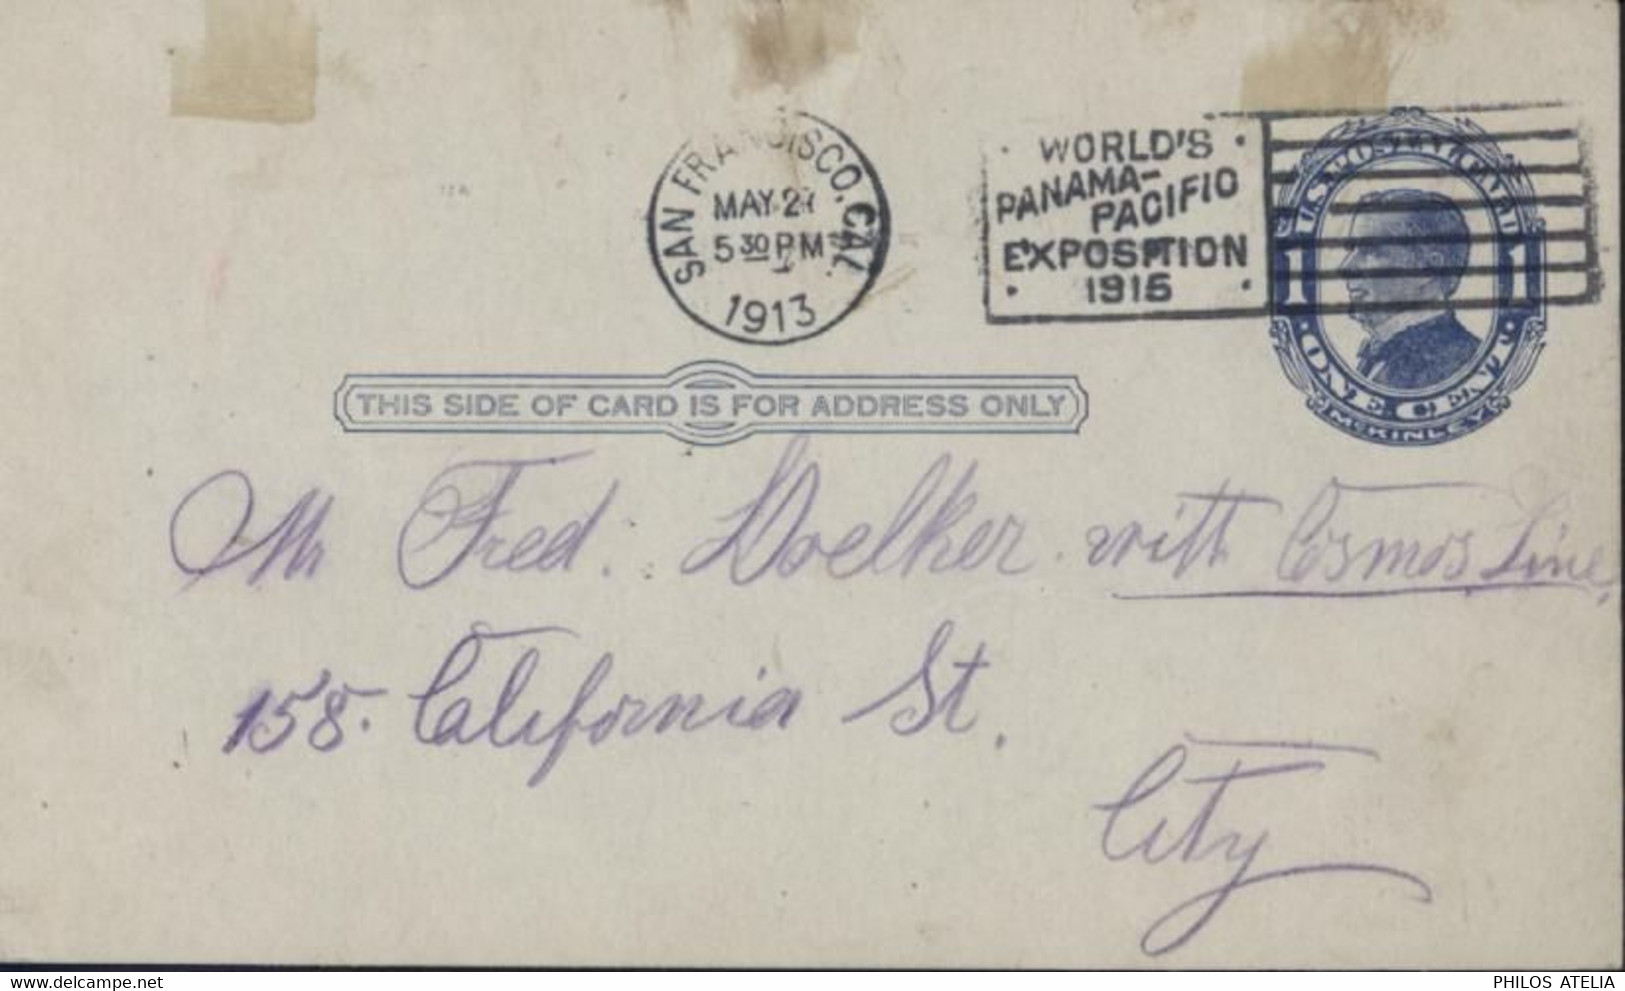 SAN FRANCISCO, CAL.
MAY 27
5 30 PM
1913
· WORLD'S ·
PANAMA-
PACIFIC
EXPOSITION
· 1915 ·
U.S. POSTAL CARD
1 1
· ONE CENT ·
McKINLEY
THIS SIDE OF CARD IS FOR ADDRESS ONLY
Mr Fred. Woelker with Cosmos Line,
158. California St.
City
PHILOS ATELIA